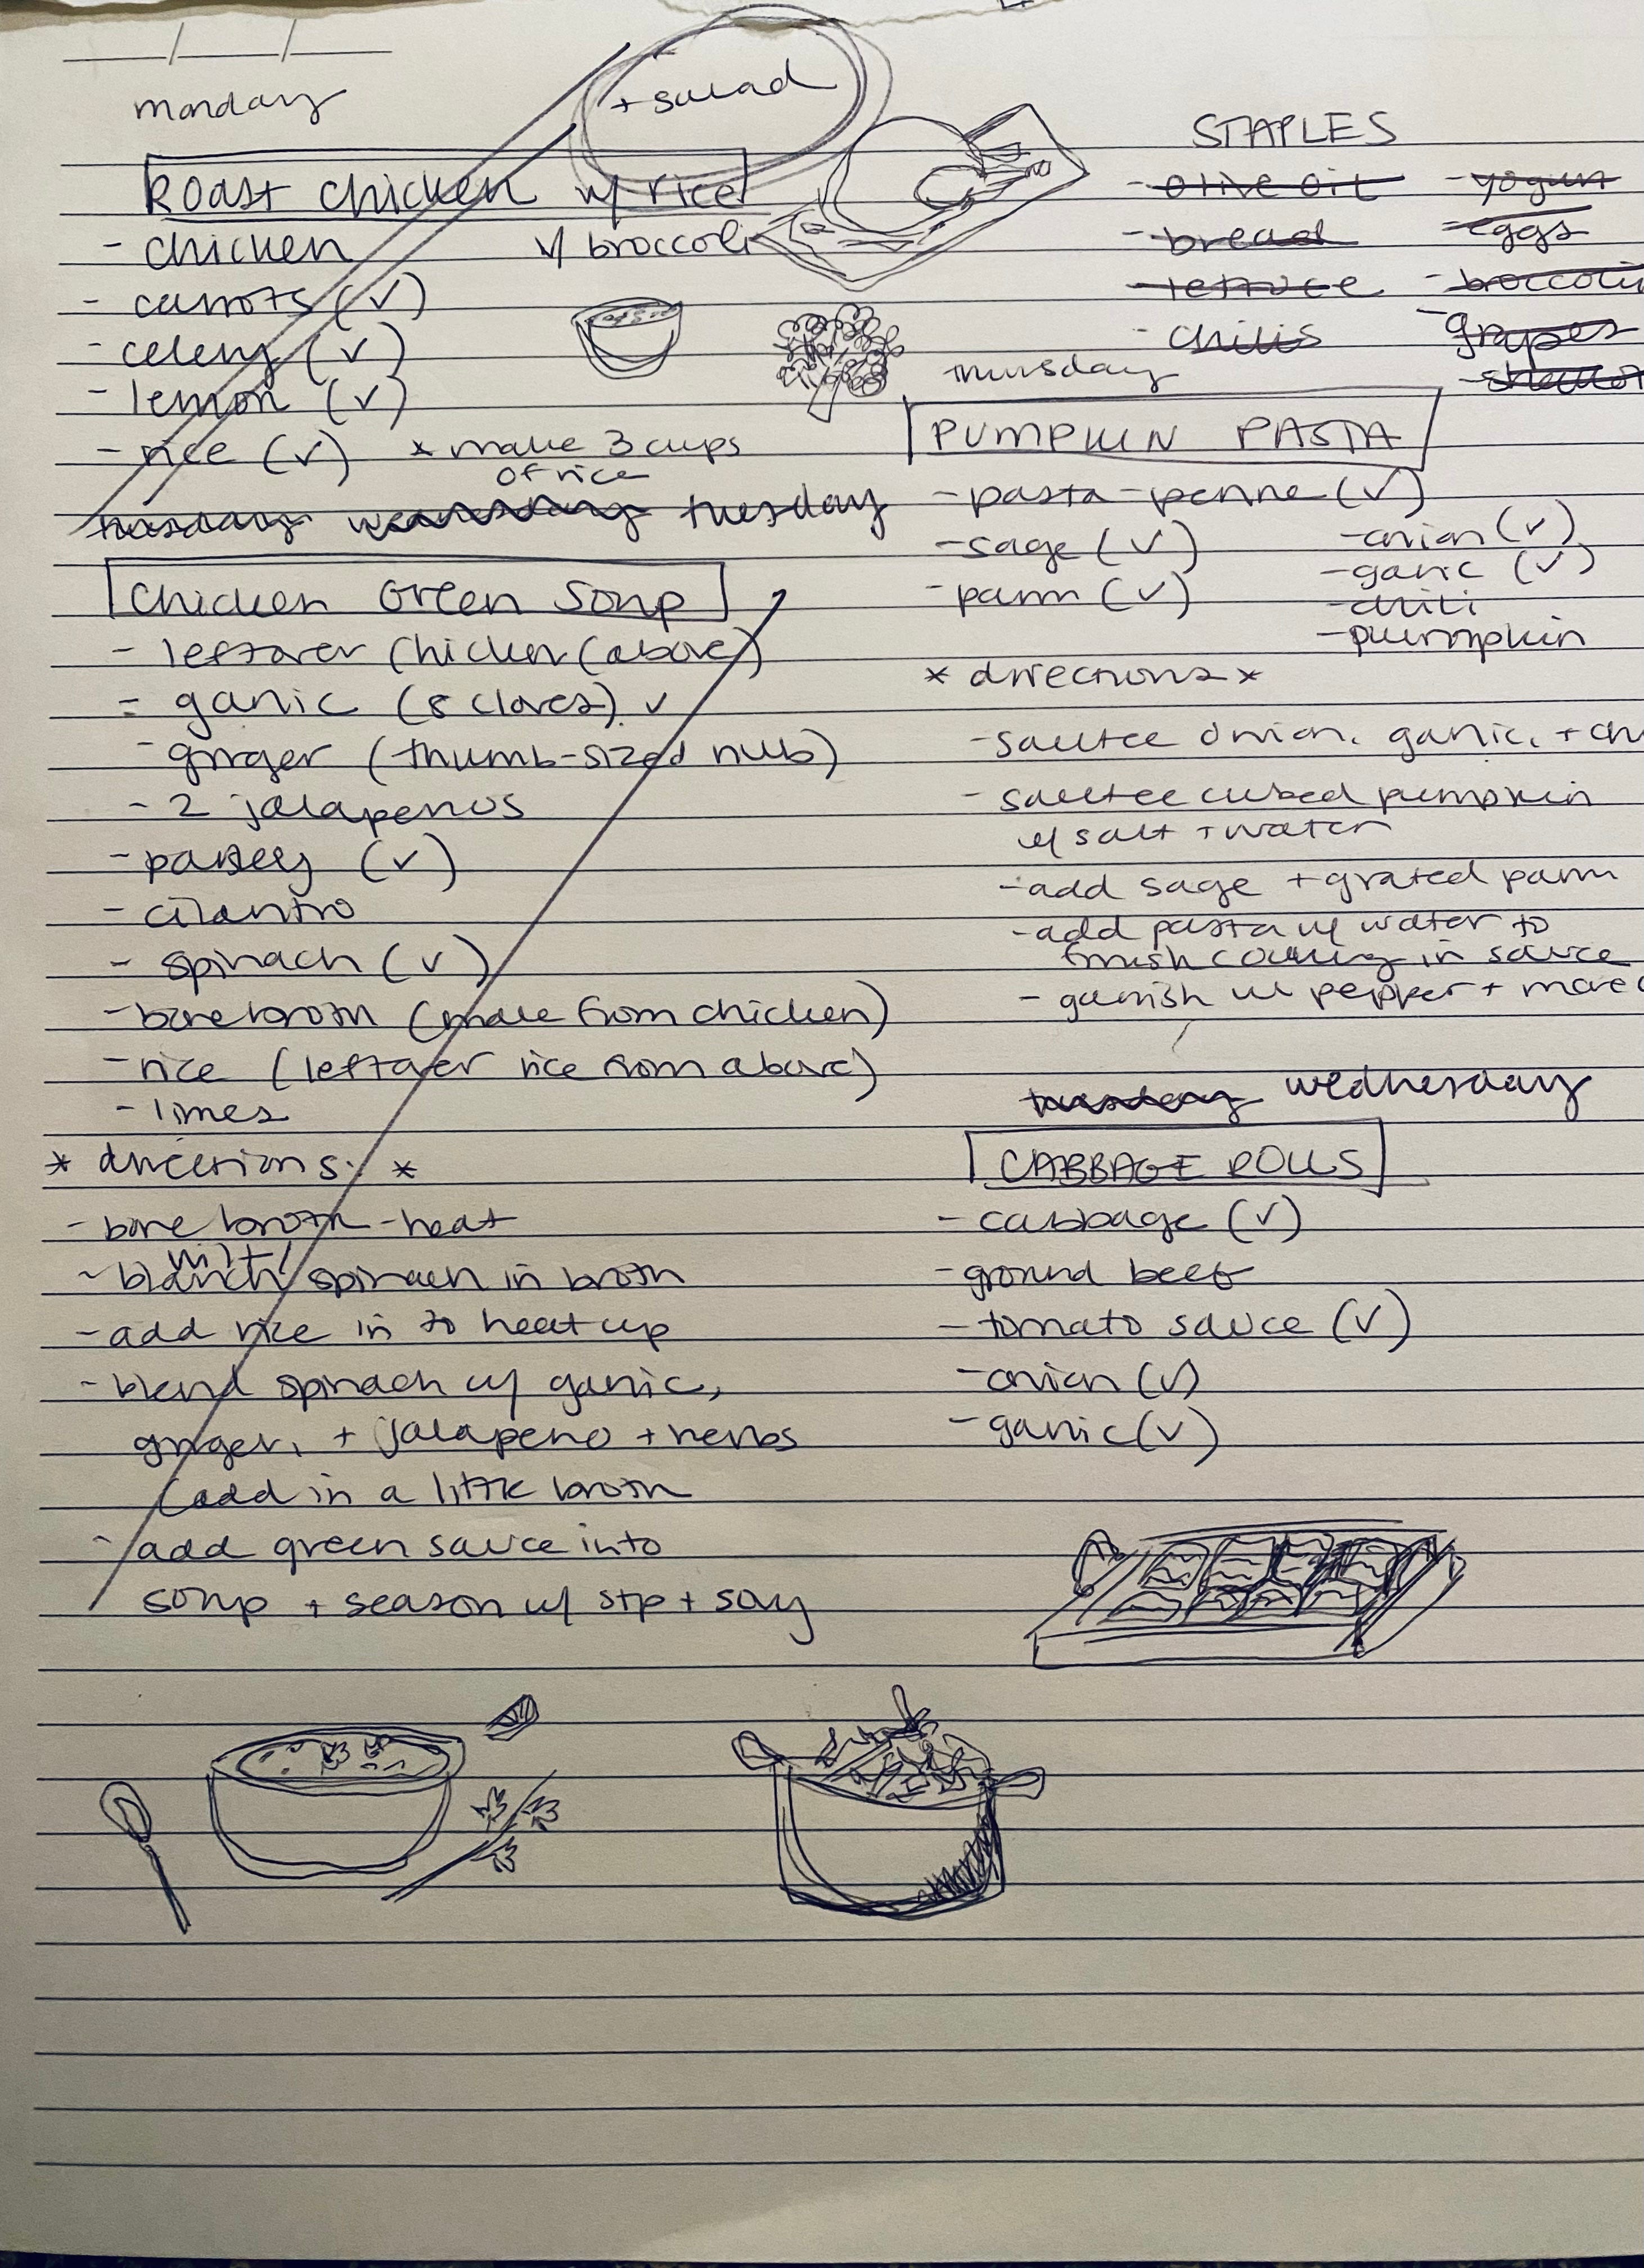 monday
+ salad
Roast chicken w/ rice
w/ broccoli
- chicken
- carrots (✓)
- celery (✓)
- lemon (✓)
- rice (✓)
* make 3 cups
of rice
tuesday
Chicken Green Soup
- leftover chicken (above)
- garlic (8 cloves) ✓
- ginger (thumb-sized nub)
- 2 jalapenos
- parsley (✓)
- cilantro
- spinach (✓)
- bone broth (make from chicken)
- rice (leftover rice from above)
- limes
* directions: *
- bone broth - heat
wilt
- blanch spinach in broth
- add rice in to heat up
- blend spinach w/ garlic,
ginger, + jalapeno + herbs
(add in a little broth
- add green sauce into
soup + season w/ s+p + soy
STAPLES
- olive oil
- bread
- lettuce
- chilis
- yogurt
- eggs
- broccoli
- grapes
thursday
PUMPKIN PASTA
- pasta - penne (✓)
- sage (✓)
- parm (✓)
- onion (✓)
- garlic (✓)
- chili
- pumpkin
* directions *
- sautee onion, garlic, +
- sautee cubed pumpkin
w/ salt + water
- add sage + grated parm
- add pasta w/ water to
finish cooking in sauce
- garnish w/ pepper + more
tuesday wednesday
CABBAGE ROLLS
- cabbage (✓)
- ground beef
- tomato sauce (✓)
- onion (✓)
- garlic (✓)